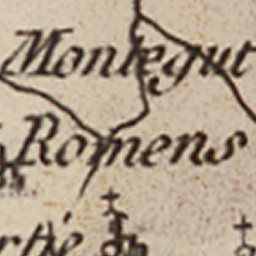 Montegut
Romens
rtie